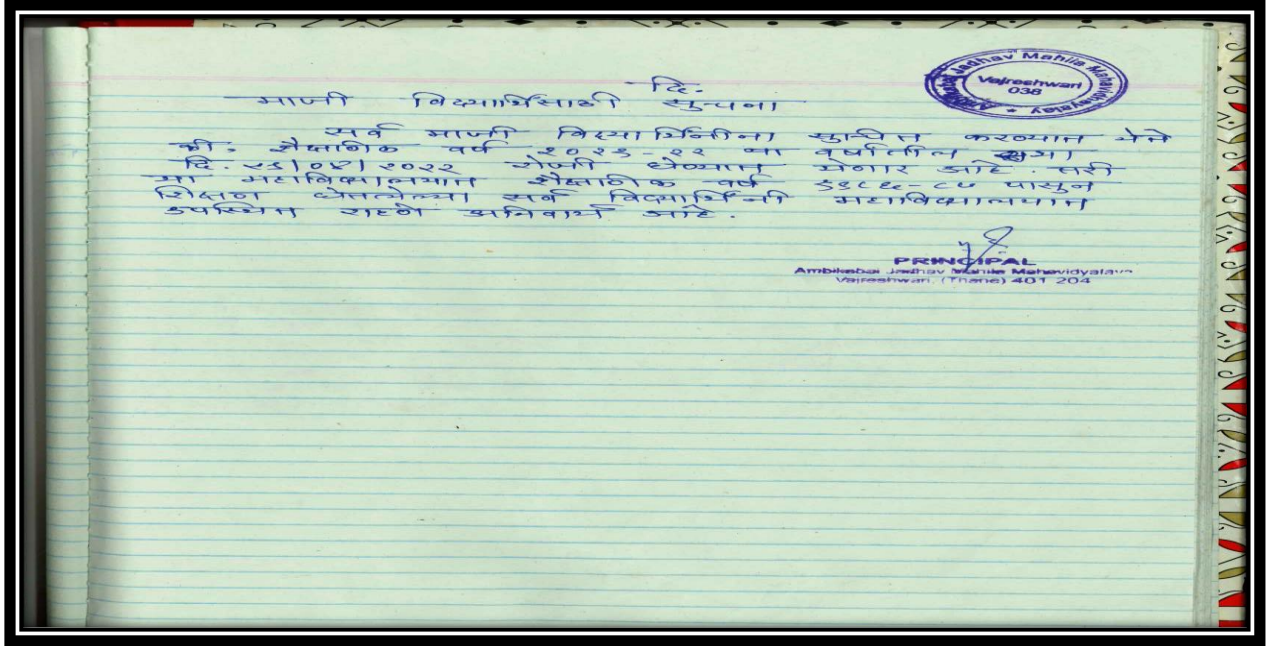 Ambikabai Jadhav Mahila Mahavidyalay
Vajreshwari
038
दि:
माजी विद्यार्थिसाठी सुचना
सर्व माजी विद्यार्थिनीना सुचित करण्यात येते
की: शैक्षणिक वर्ष २०२१-२२ या वर्षातील सभा
दि. २९/०४/२०२२ रोजी घेण्यात येणार आहे. तरी
या महाविद्यालयात शैक्षणिक वर्ष पासुन
शिक्षण घेतलेल्या सर्व विद्यार्थिनी महाविद्यालयात
उपस्थित राहणे अनिवार्य आहे.
PRINCIPAL
Ambikabai Jadhav Mahila Mahavidyalaya
Vajreshwari, (Thane) 401 204